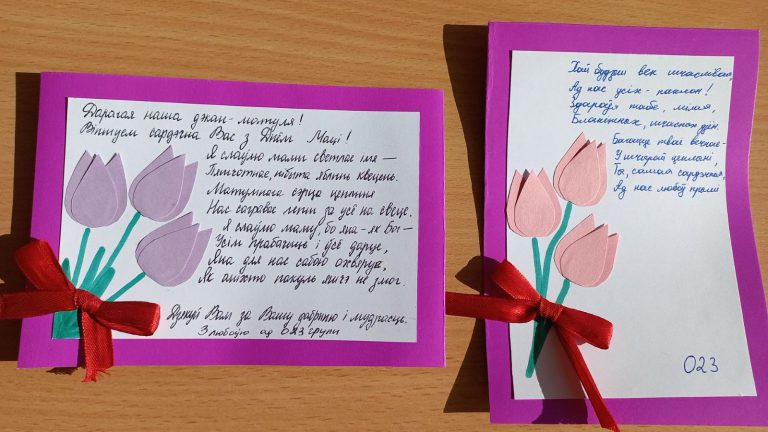 Дарагая наша джан-матуля!
Віншуем сардэчна Вас з Днём Маці!
Я слаўлю мамы светлае імя —
Пяшчотнае, нібыта яблынь квецень.
Матулінага сэрца цеплыня
Нас сагравае лепш за ўсё на свеце.
Я слаўлю маму, бо яна - як Бог —
Усім прабачыць і ўсё даруе,
Яна для нас сабою ахвяруе,
Як аніхто пакуль яшчэ не змог.
Дзякуй Вам за Вашу дабрыню і мудрасць.
З любоўю ад 023 групы
Хай будзеш век шчаслівая,
Ад нас усіх - паклон!
Здароўя табе, мілая,
Блакітных, шчасных дзён.
Багацце тваё вечнае -
У шчырай цеплыні,
Ты, самая сардэчная,
Ад нас любоў прымі
023